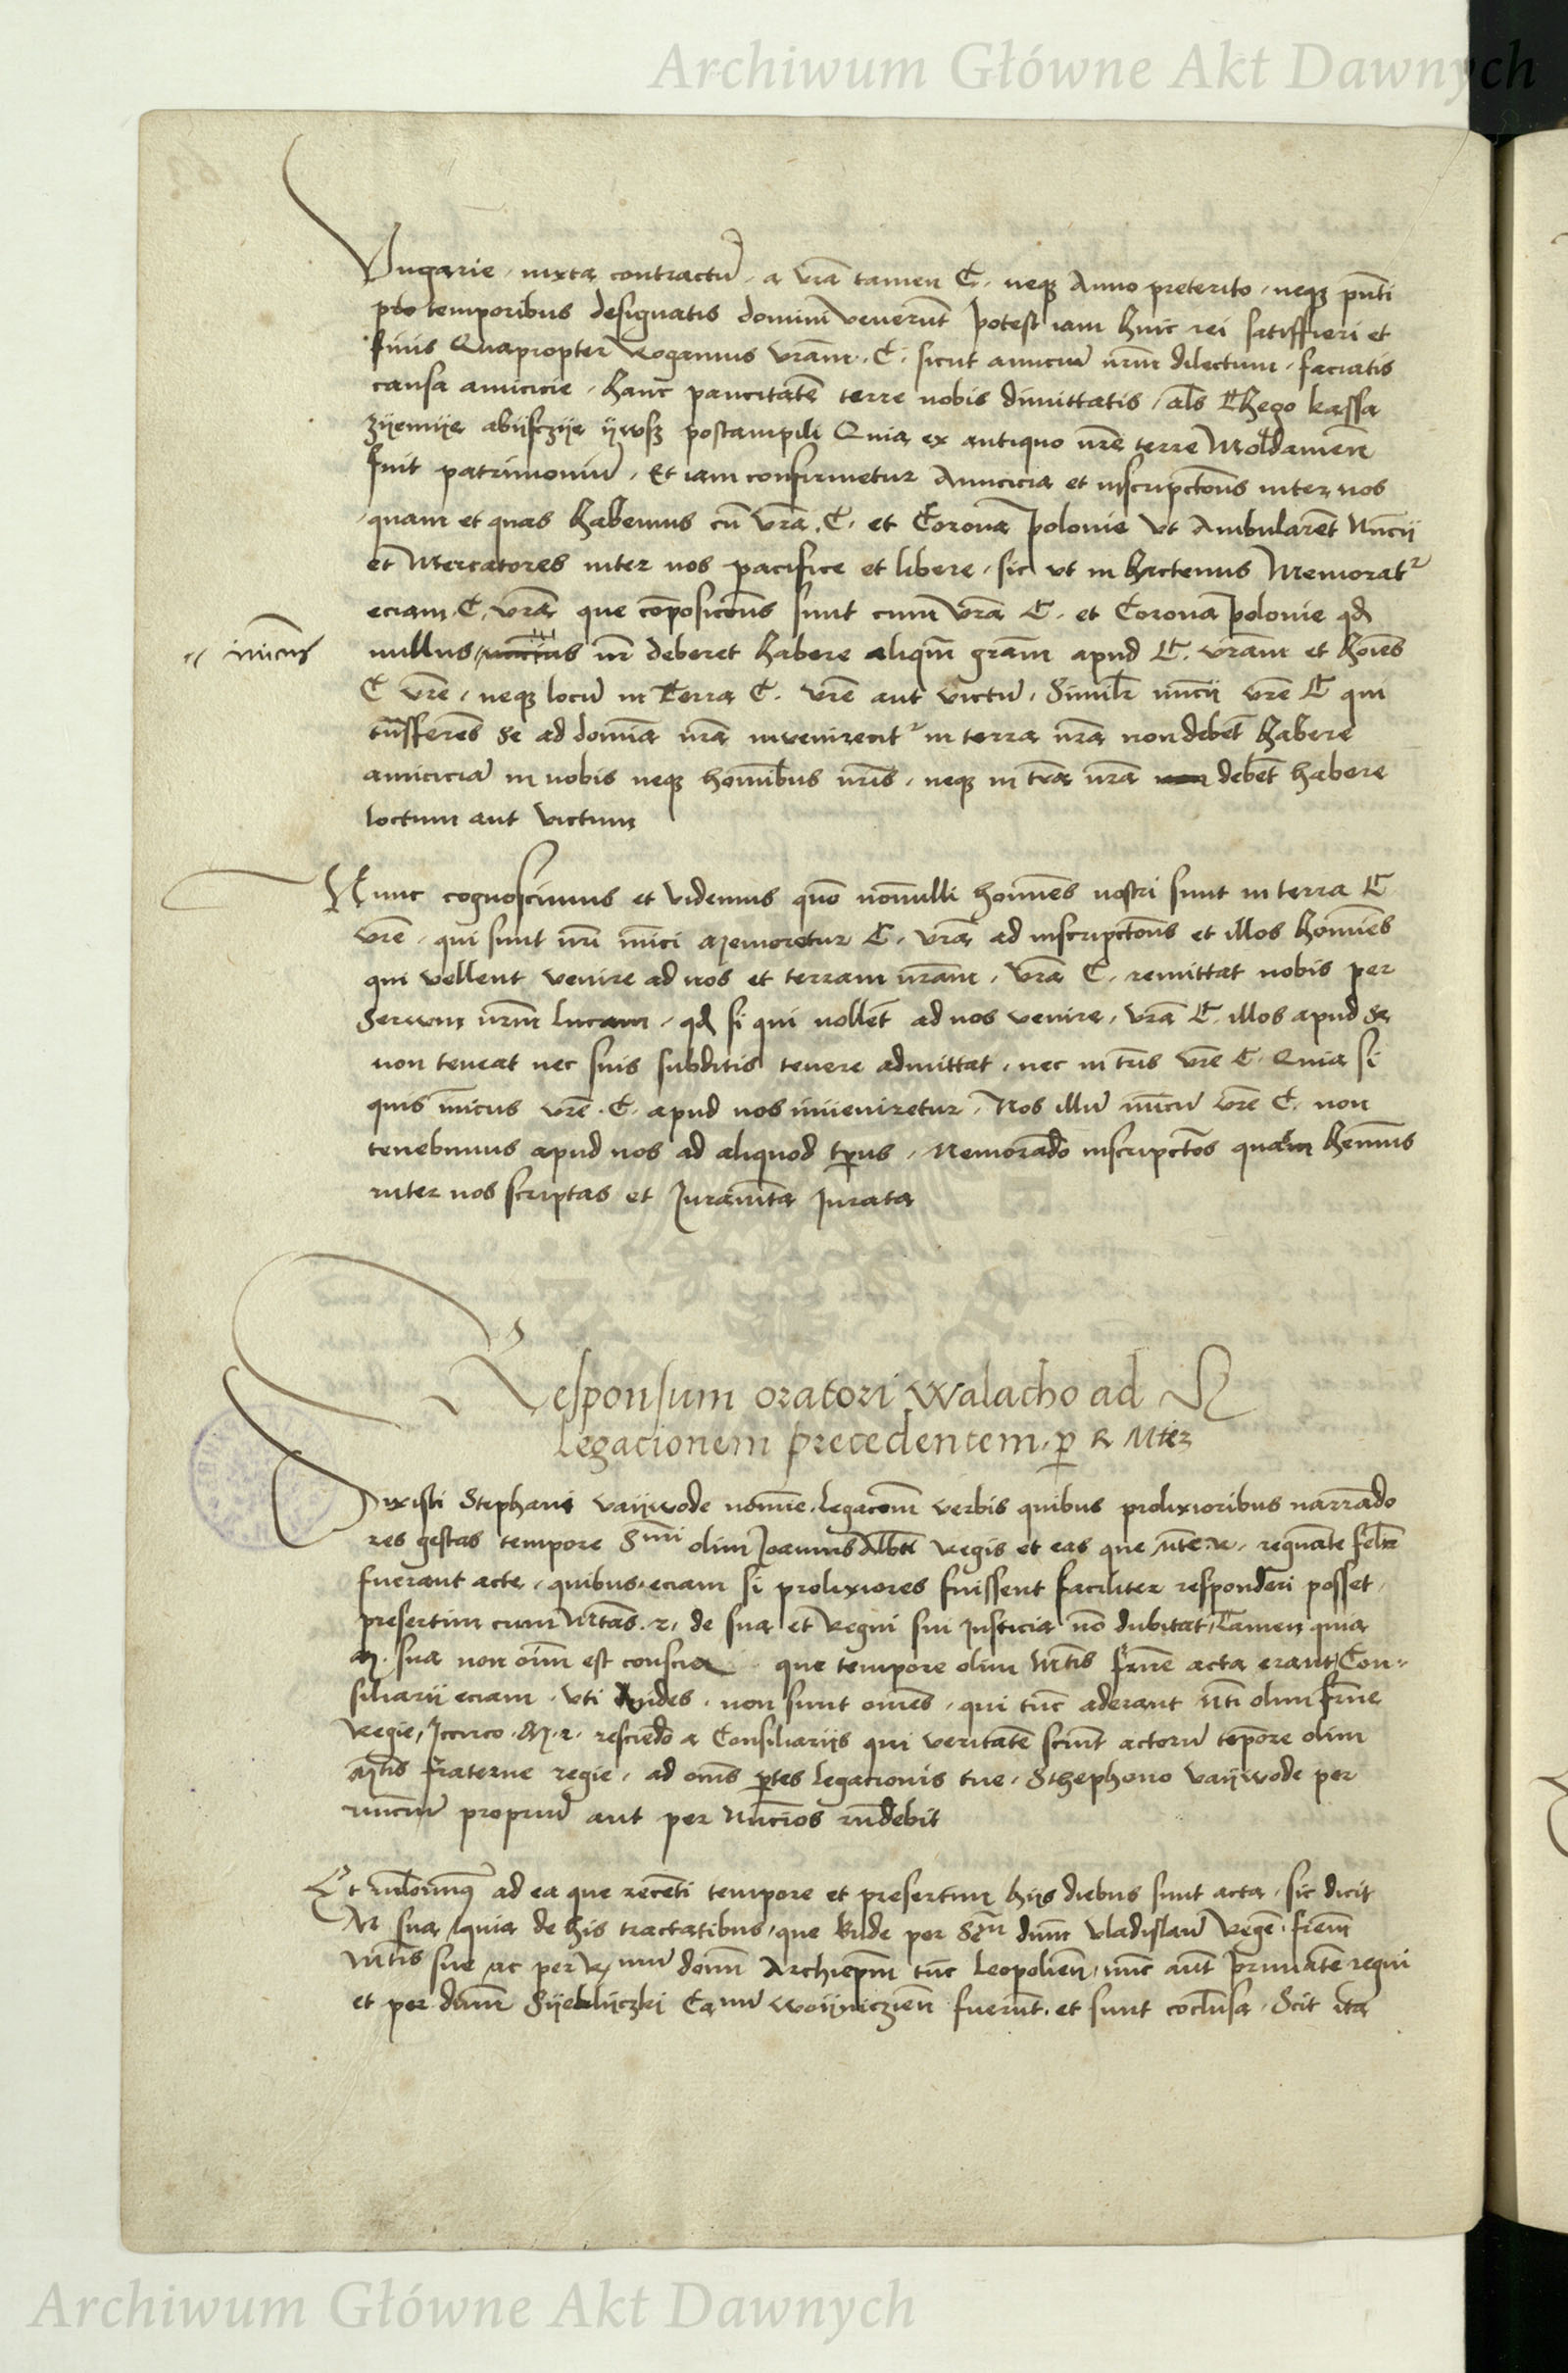 Archiwum Główne Akt Dawnych
Ungarie, iuxta contractū, a vrā tamen C. neqȝ Anno preterito, neqȝ pn̄ti
pto temporibus designatis domini venerūt potest iam huic rei satisffieri et
finis Quapropter Rogamus vrām. C. sicut amicum nr̄m dilectum, faciatis
causa amicicie, hanc paucitatē terre nobis dimittatis, als Thego kassa
zÿemÿe abÿsczÿe ÿwsz postampili Quia ex antiquo nr̄e terre Moldamēn
fuit patrimoniū, Et iam confirmetur Amicicia et inscripctōns inter nos
quam et quas habemus cū vrā. C. et Coronā polonie vt Ambularēt Nūcij
et Mercatores inter nos pacifice et libere, sic vt in hactenus Memorat
eciam. C. vrā que cōposicōns sunt cum vrā C. et Coronā polonie qđ
inīcus nullus, nr̄ deberet habere aliqm̄ grām apud C. vrām et hoīes
C vrē, neqȝ locū in Terra C. vrē aut victū, Similr̄ nūcij vrē C qui
trn̄sferēs se ad domiā nrā invenirent in terra nrā non debēt habere
amiciciā in nobis neqȝ hominībus nrīs, neqȝ in trā nrā debēt habere
loctum aut victum
Nunc cognoscimus et videmus quō nōnulli homiēs nostri sunt in terra C
vrē, qui sunt nrī inīci Memoretur C. vrā ad inscripctōns et illos homīes
qui vellent venire ad nos et terram nrām, vrā C. remittat nobis per
Serwm nrm̄ Lucam, qđ si qui nollēt ad nos venire, vrā C. illos apud se
non teneat nec suis subditis tenere admittat, nec in trīs vrē C. Quia si
quis inīcus vrē. C. apud nos inveniretur, Nos illū inīcū vrē C. non
tenebimus apud nos ad aliquod tp̄us, Memorādo inscripctōs quam hem̄us
inter nos scriptas et Juramēta Jurata
Responsum oratori Walacho ad
Legacionem precedentem, p R Mtez
Dixisti Stephani vaÿwode nomīe legacōm verbis quibus prolixioribus narrādo
res gestas tempore Smi olim Joannis Albti Regis et eas que, regnāte felr
fuerant acte, quibus eciam si prolixiores fuissent faciliter responderi posset,
presertim cum Mtas. r, de sua et Regni sui Justicia nō dubitat, Tamen quia
M. sua non oīm est conscia que tempore olim Mtis frnē acta erant, Con-
siliarij eciam, vti vides, non sunt omēs, qui tūc aderant Mti olim frne
Regie, Jccirco. M. r. resciēdo a Consiliarijs qui veritatē sciūt actorū tēpore olim
Mtis fraterne regie, ad omīs ptes legacionis tue, Sthephono vaÿwode per
nuncīū propriū aut per Nūcios rn̄debit
Et ad ea que recēti tempore et presertim hijs diebus sunt acta, sic dicit
M sua, quia de his tractatibus, que Bude per Sēm dn̄m Vladislaū Regē, frēm
Mtis sue, ac per R mū domī Archiepm̄ tūc Leopoliēn, nūc aūt primatē regni
et per dnm̄ Sÿekliczki Ca nū woÿniczieñ fuerūt, et sunt cōclusa, Scit ita
Archiwum Główne Akt Dawnych